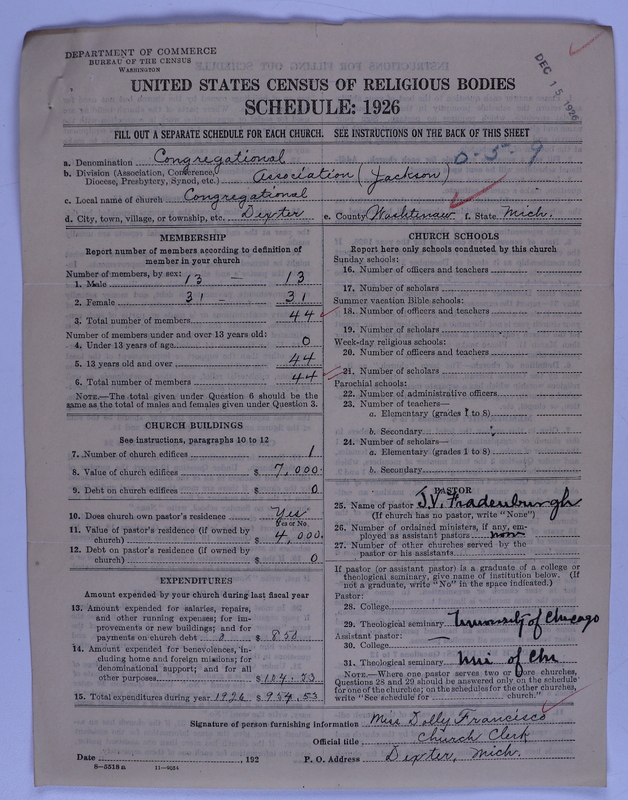 DEPARTMENT OF COMMERCE
BUREAU OF THE CENSUS
WASHINGTON
DEC 15 1926
UNITED STATES CENSUS OF RELIGIOUS BODIES
SCHEDULE: 1926
FILL OUT A SEPARATE SCHEDULE FOR EACH CHURCH. SEE INSTRUCTIONS ON THE BACK OF THIS SHEET
a. Denomination Congregational 0-5-9
b. Division (Association, Conference, Diocese, Presbytery, Synod, etc.) Association (Jackson)
c. Local name of church Congregational
d. City, town, village, or township, etc. Dexter e. County Washtenaw f. State Mich.
MEMBERSHIP
Report number of members according to definition of
member in your church
Number of members, by sex:
1. Male 13 – 13
2. Female 31 – 31
3. Total number of members 44
Number of members under and over 13 years old:
4. Under 13 years of age 0
5. 13 years old and over 44
6. Total number of members 44
NOTE.—The total given under Question 6 should be the
same as the total of males and females given under Question 3.
CHURCH BUILDINGS
See instructions, paragraphs 10 to 12
7. Number of church edifices 1
8. Value of church edifices $ 7,000
9. Debt on church edifices $ 0
10. Does church own pastor's residence Yes
Yes or No
11. Value of pastor's residence (if owned by
church) $ 4,000
12. Debt on pastor's residence (if owned by
church) $ 0
EXPENDITURES
Amount expended by your church during last fiscal year
13. Amount expended for salaries, repairs,
and other running expenses; for im-
provements or new buildings; and for
payments on church debt $ 850
14. Amount expended for benevolences, in-
cluding home and foreign missions; for
denominational support; and for all
other purposes $ 104.53
15. Total expenditures during year 1926 $ 954.53
CHURCH SCHOOLS
Report here only schools conducted by this church
Sunday schools:
16. Number of officers and teachers
17. Number of scholars
Summer vacation Bible schools:
18. Number of officers and teachers
19. Number of scholars
Week-day religious schools:
20. Number of officers and teachers
21. Number of scholars
Parochial schools:
22. Number of administrative officers
23. Number of teachers—
a. Elementary (grades 1 to 8)
b. Secondary
24. Number of scholars—
a. Elementary (grades 1 to 8)
b. Secondary
PASTOR
25. Name of pastor J.V. Fradenburgh
(If church has no pastor, write "None")
26. Number of ordained ministers, if any, em-
ployed as assistant pastors none
27. Number of other churches served by the
pastor or his assistants
If pastor (or assistant pastor) is a graduate of a college or
theological seminary, give name of institution below. (If
not a graduate, write "No" in the space indicated.)
Pastor:
28. College
29. Theological seminary University of Chicago
Assistant pastor:
30. College
31. Theological seminary Uni of Chi
NOTE.—Where one pastor serves two or more churches,
Questions 28 and 29 should be answered only on the schedule
for one of the churches; on the schedules for the other churches,
write "See schedule for church."
Signature of person furnishing information Miss Dolly Francisco
Official title Church Clerk
Date , 192 P. O. Address Dexter, Mich.
8-5518a 11-9054